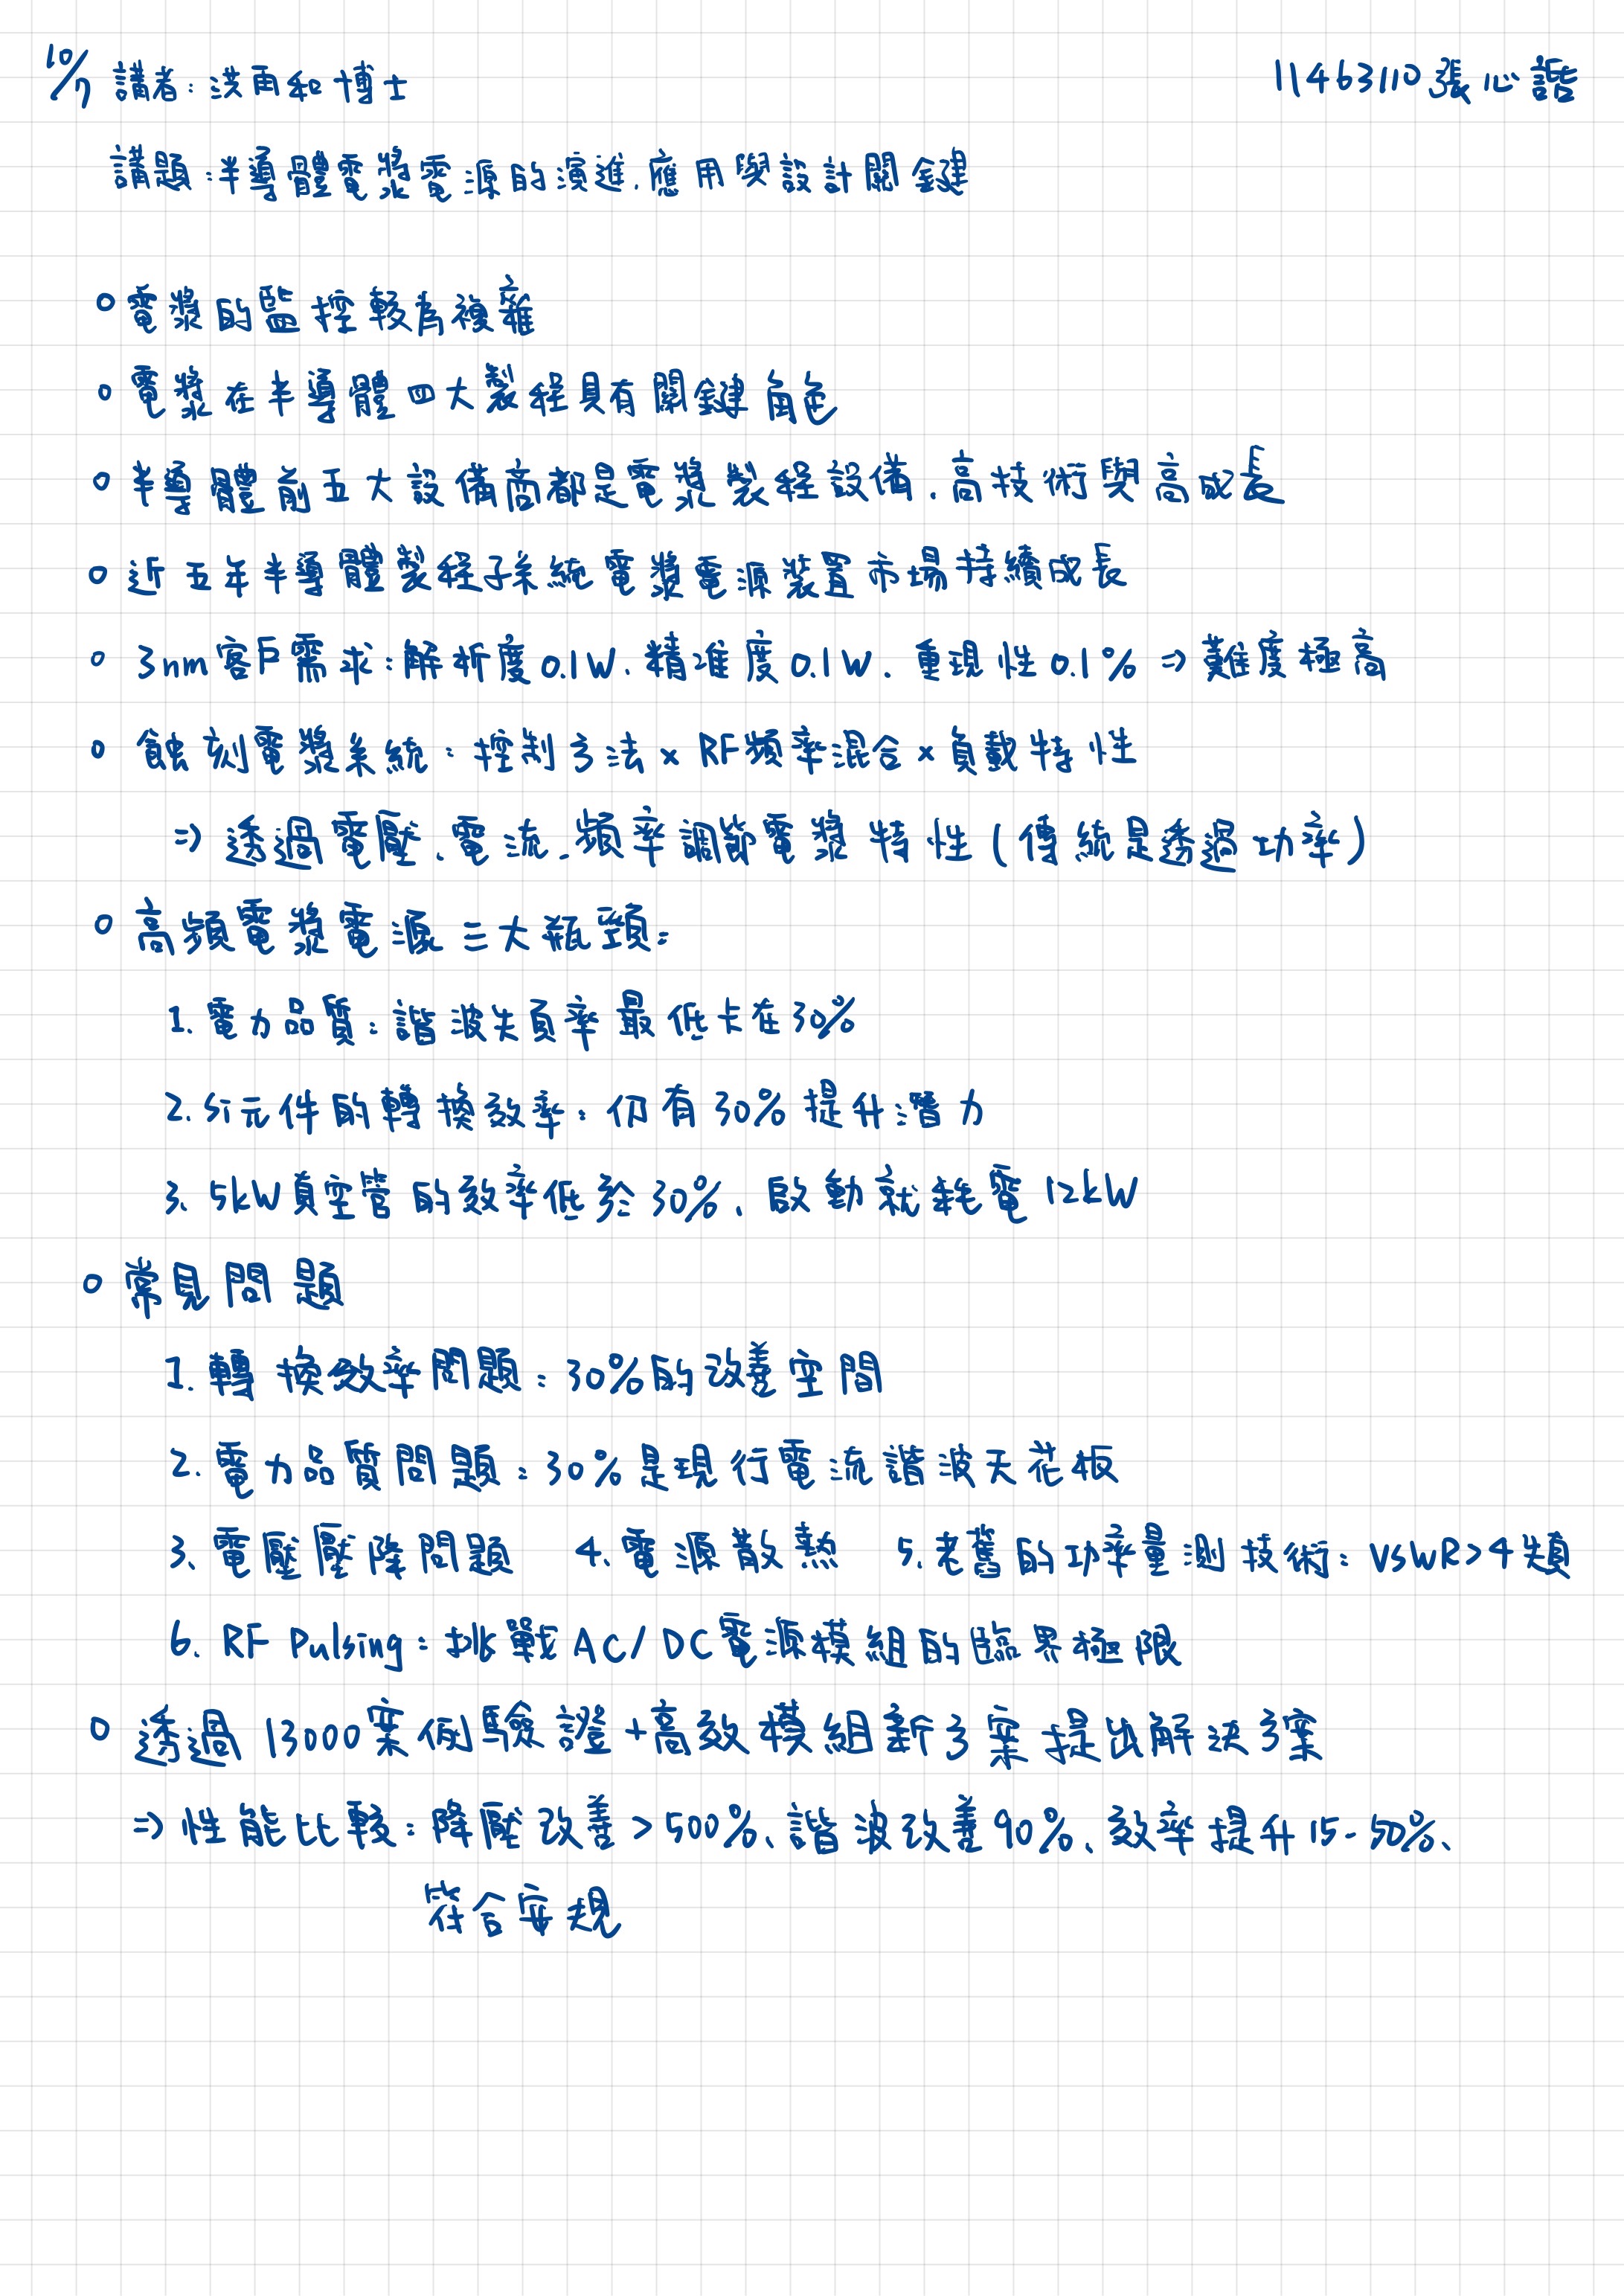 10/7 講者：洪再和博士
11463110 張心諧
講題：半導體電漿電源的演進、應用與設計關鍵
○ 電漿的監控較為複雜
○ 電漿在半導體四大製程具有關鍵角色
○ 半導體前五大設備商都是電漿製程設備、高技術與高成長
○ 近五年半導體製程子系統電漿電源裝置市場持續成長
○ 3nm客戶需求：解析度0.1W、精準度0.1W、重現性0.1% ⇒ 難度極高
○ 蝕刻電漿系統：控制方法 × RF頻率混合 × 負載特性
⇒ 透過電壓、電流、頻率調節電漿特性（傳統是透過功率）
○ 高頻電漿電源三大瓶頸：
1. 電力品質：諧波失真率最低卡在30%
2. Si元件的轉換效率：仍有30%提升潛力
3. 5kW真空管的效率低於30%、啟動就耗電12kW
○ 常見問題
1. 轉換效率問題：30%的改善空間
2. 電力品質問題：30%是現行電流諧波天花板
3. 電壓壓降問題 4. 電源散熱 5. 老舊的功率量測技術：VSWR>4失真
6. RF Pulsing：挑戰AC/DC電源模組的臨界極限
○ 透過13000案例驗證+高效模組新方案提出解決方案
⇒ 性能比較：降壓改善>500%、諧波改善90%、效率提升15-50%、
符合安規